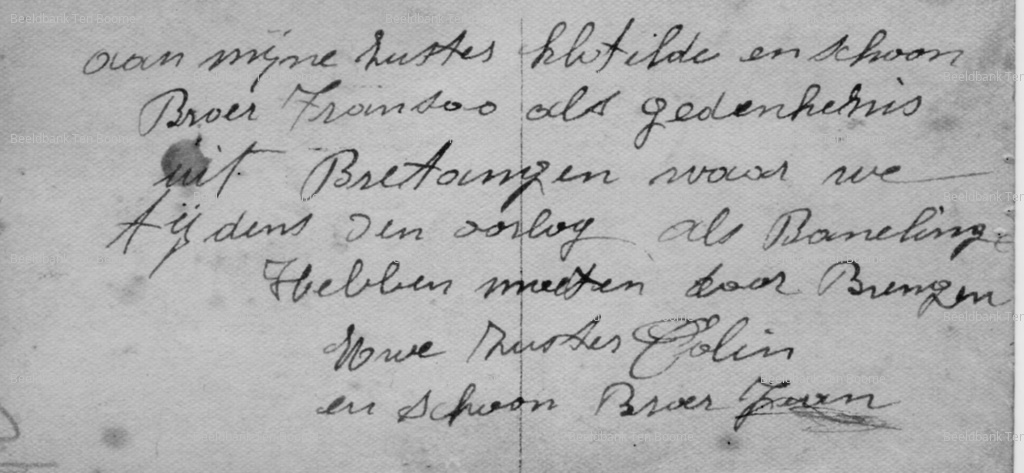 aan mijne zuster klotilde en schoon
Broer Fransoo als gedenkenis
uit Bretangen waar we
tijdens den oorlog als Baneling
Hebben moeten door Brengen
Uwe zuster Colin
en schoon Broer